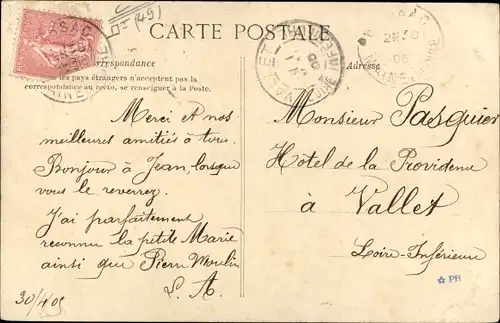 CARTE POSTALE
Correspondance
Adresse
les pays étrangers n'acceptent pas la
correspondance au recto, se renseigner à la Poste.
Merci et nos
meilleures amitiés à tous.
Bonjour à Jean, lorsque
vous le reverrez.
J'ai parfaitement
reconnu la petite Marie
ainsi que Pierre Moulin
L. A.
30/4/05
Monsieur Pasquier
Hôtel de la Providence
à Vallet
Loire-Inférieure
PB